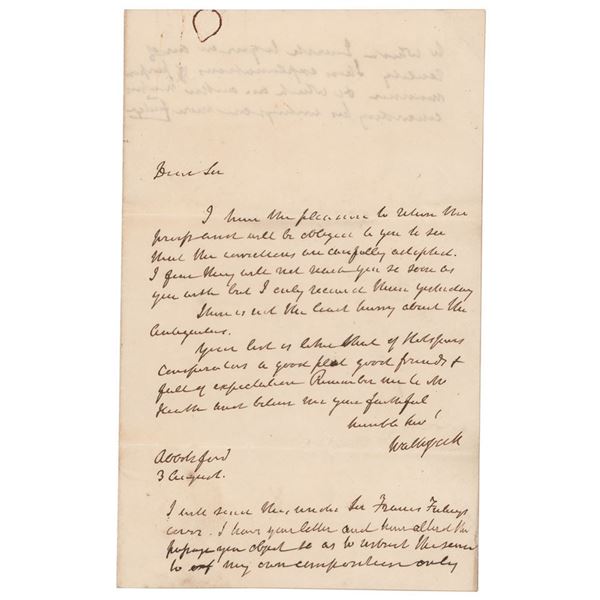 Dear Sir
I have the pleasure to return the
proofs and will be obliged to you to see
that the corrections are carefully adopted.
I fear they will not reach you so soon as
you wish but I only received them yesterday
There is not the least hurry about the
Antiquities.
Your list is like that of Hotspurs
conspirators a good plot good friends &
full of expectation Remember me to Mr
Heath and believe me your faithful
humble Servt
Walter Scott
Abbotsford
3 August.
I will send this under Sir Francis Freelings
cover. I have your letter and have altered the
passage you object to so as to restrict the sense
to my own composition only